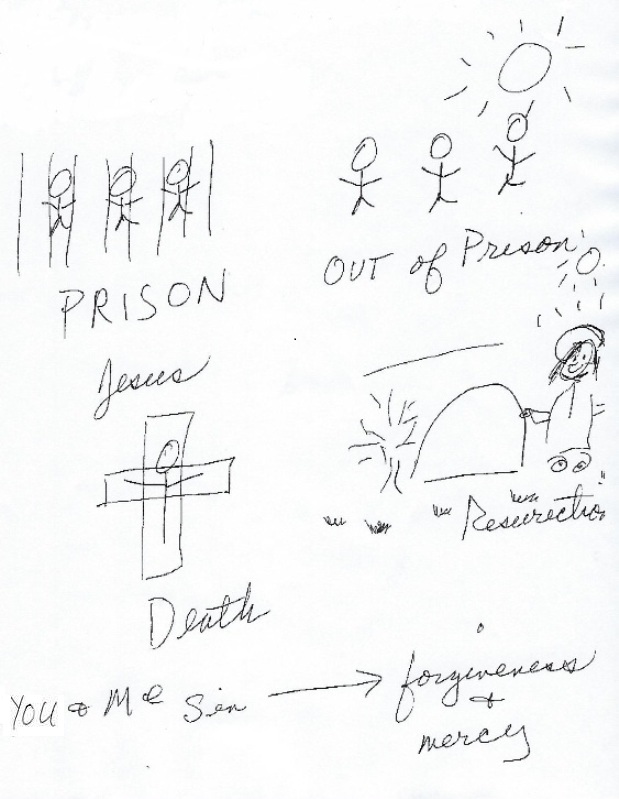 PRISON
OUT of Prison
Jesus
Death
Resurrection
YOU & Me Sin → forgiveness
&
mercy